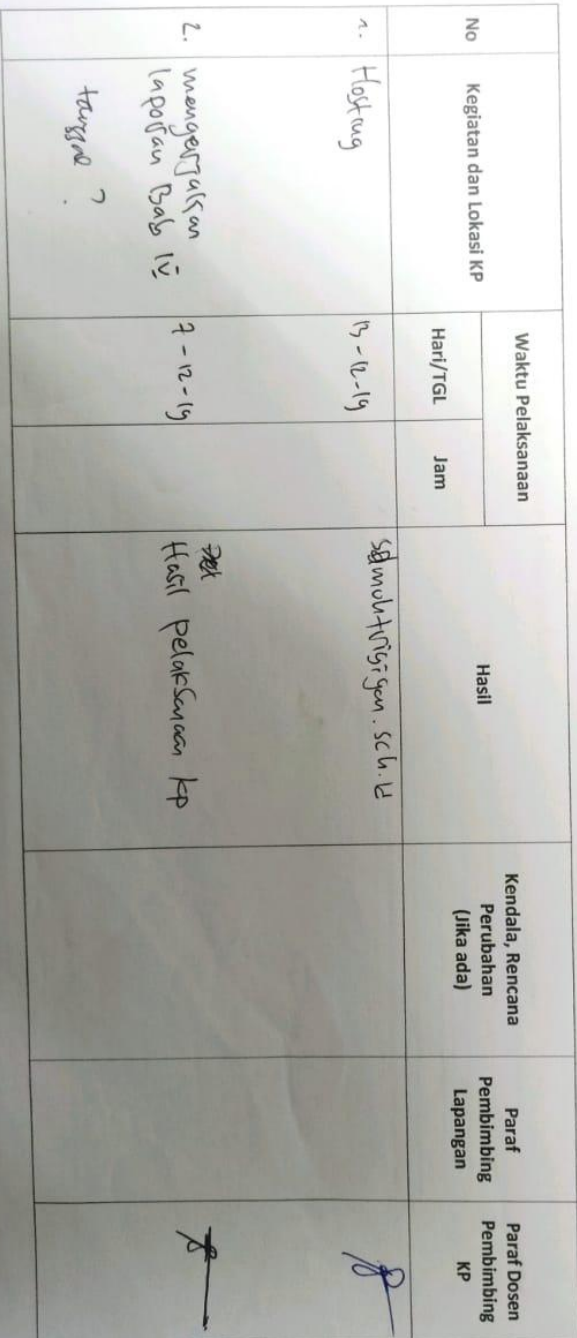 No
Kegiatan dan Lokasi KP
Waktu Pelaksanaan
Hari/TGL
Jam
Hasil
Kendala, Rencana
Perubahan
(Jika ada)
Paraf
Pembimbing
Lapangan
Paraf Dosen
Pembimbing
KP
1. Hosting
13-12-19
2. mengerjakan
laporan Bab IV
tanggal ?
7-12-19
Hasil pelaksanaan kp